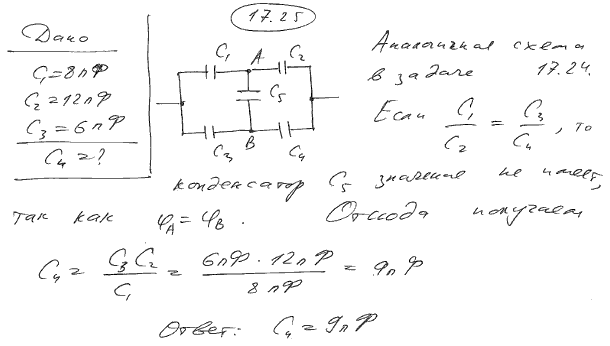 17.25
Дано
C₁=8пФ
C₂=12пФ
C₃=6пФ
C₄=?
C₁ A C₂
C₅
C₃ B C₄
Аналогичная схема
в задаче 17.24.
Если C₁/C₂ = C₃/C₄, то
конденсатор C₅ значения не имеет,
так как φA=φB. Отсюда получаем
C₄ = C₃C₂/C₁ = 6пФ · 12пФ / 8пФ = 9пФ
Ответ: C₄=9пФ